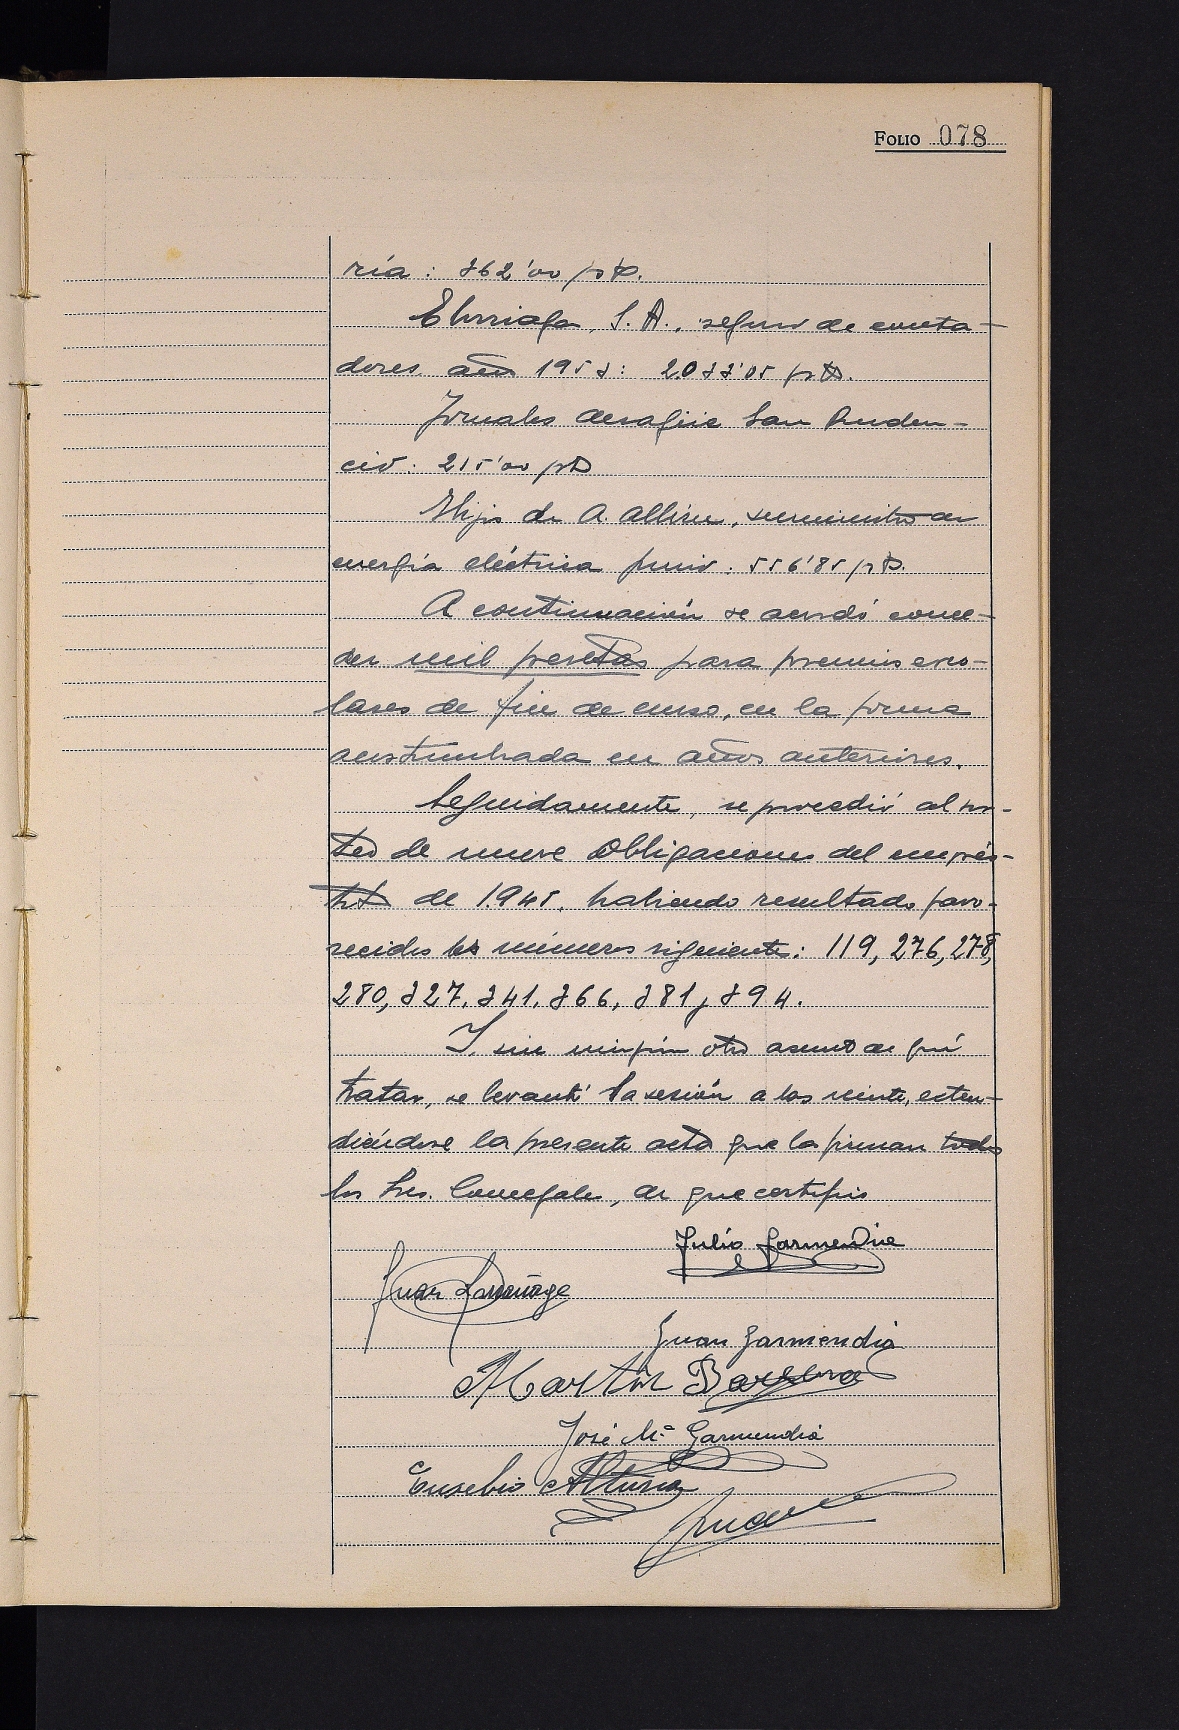 FOLIO 078
ría: 362'00 pts.
Elorriaga, S. A., seguro de conta-
dores año 1953: 2.033'05 pts.
Jornales desagüe San Pruden-
cio: 215'00 pts
Hijo de A. Albisu, suministro de
energía eléctrica junio: 556'85 pts.
A continuación se acordó conce-
der mil pesetas para premios esco-
lares de fin de curso, en la forma
acostumbrada en años anteriores.
Seguidamente, se procedió al sor-
teo de nueve Obligaciones del emprés-
tito de 1.945, habiendo resultado favo-
recidos los números siguientes: 119, 276, 278,
280, 327, 341, 366, 381 y 394.
Y sin ningún otro asunto de qué
tratar, se levantó la sesión a las veinte, exten-
diéndose la presente acta que la firman todos
los Sres. Concejales, de que certifico
Julio Garmendia
Juan
Juan Garmendia
Martín
José Mª Garmendia
Eusebio Altuna